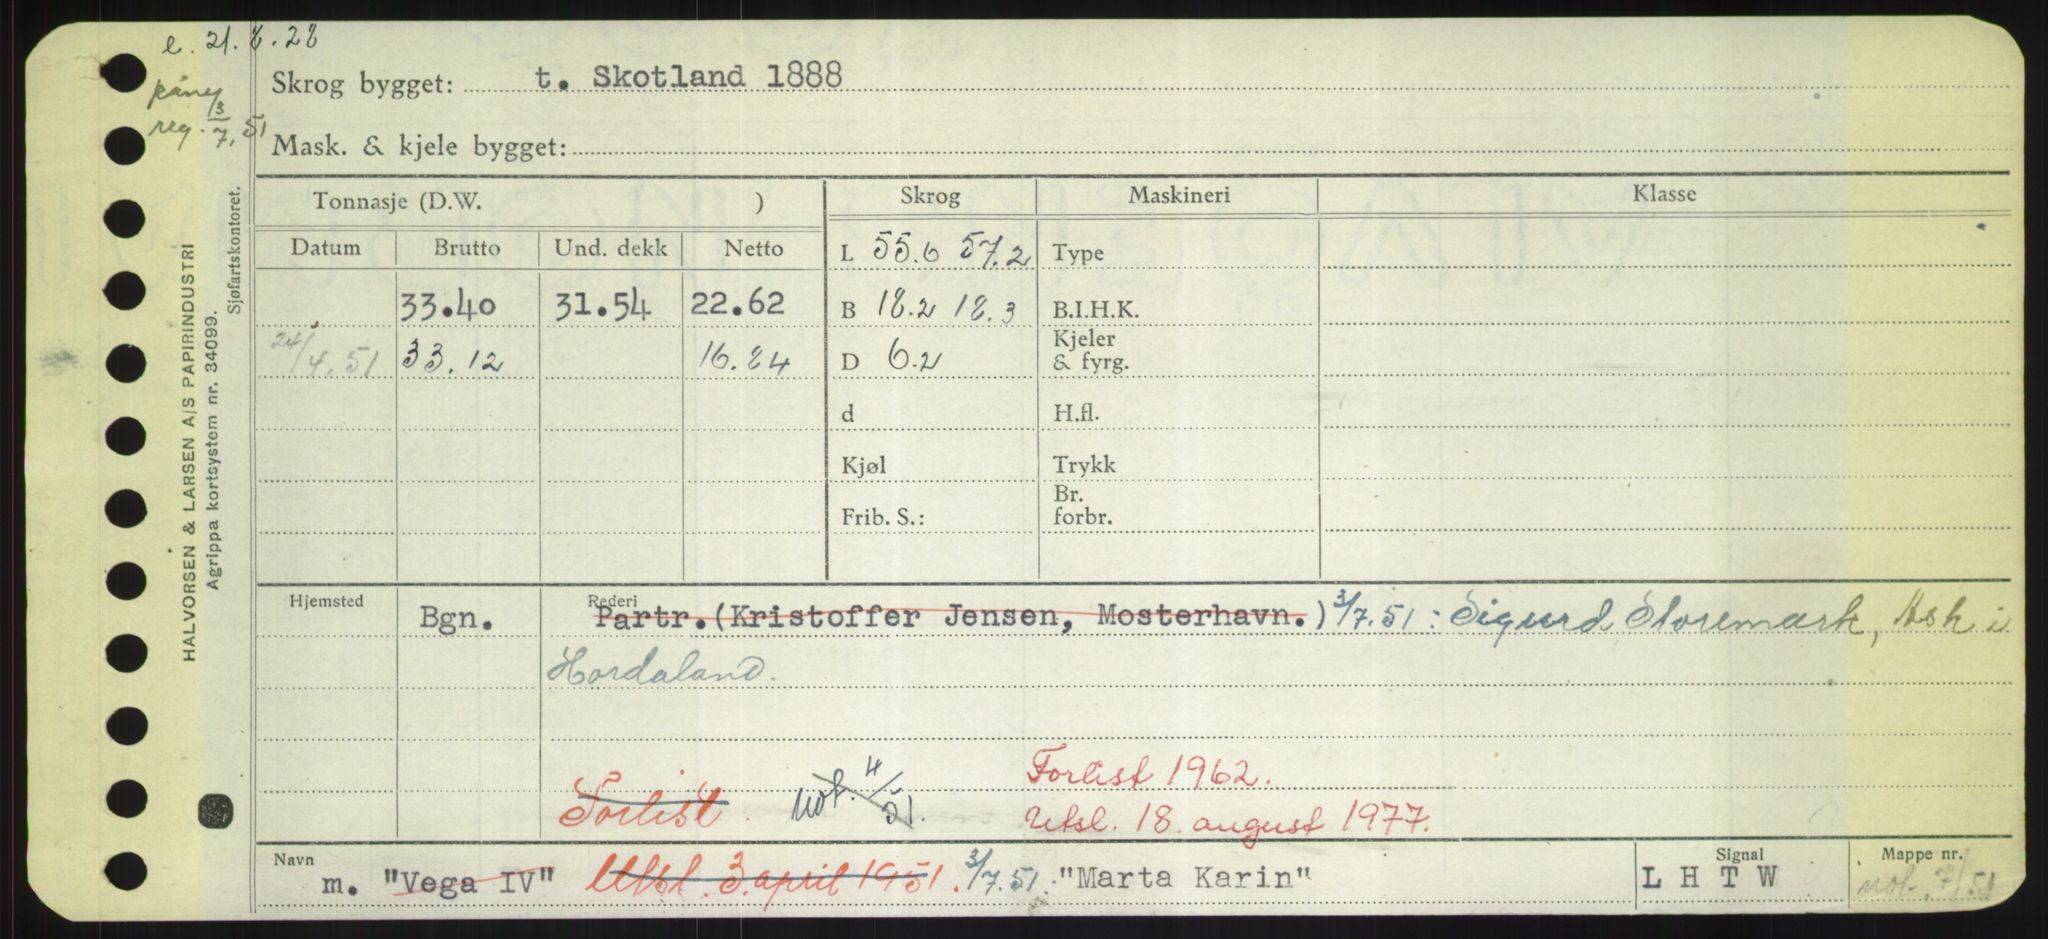 e. 21.8.28
påny
reg. 3/7.51
Skrog bygget: t. Skotland 1888
Mask. & kjele bygget:
HALVORSEN & LARSEN A/S PAPIRINDUSTRI
Agrippa kortsystem nr. 34099.
Sjøfartskontoret.
Tonnasje (D.W. )
Skrog
Maskineri
Klasse
Datum Brutto Und. dekk Netto
L 55.6 57.2
Type
33.40 31.54 22.62
B 18.2 18.3
B.I.H.K.
24/4.51 33.12 16.84
D 6.2
Kjeler
& fyrg.
d
H.fl.
Kjøl
Trykk
Frib. S.:
Br.
forbr.
Hjemsted
Bgn.
Rederi
Partr.(Kristoffer Jensen, Mosterhavn.) 3/7.51: Sigurd Storemark, Ask i
Hordaland.
Forlist. not. 4/51.
Forlist 1962.
Utsl. 18. august 1977.
Navn
m. "Vega IV" Utsl. 3. april 1951. 3/7.51. "Marta Karin"
Signal
L H T W
Mappe nr.
not. 7/51